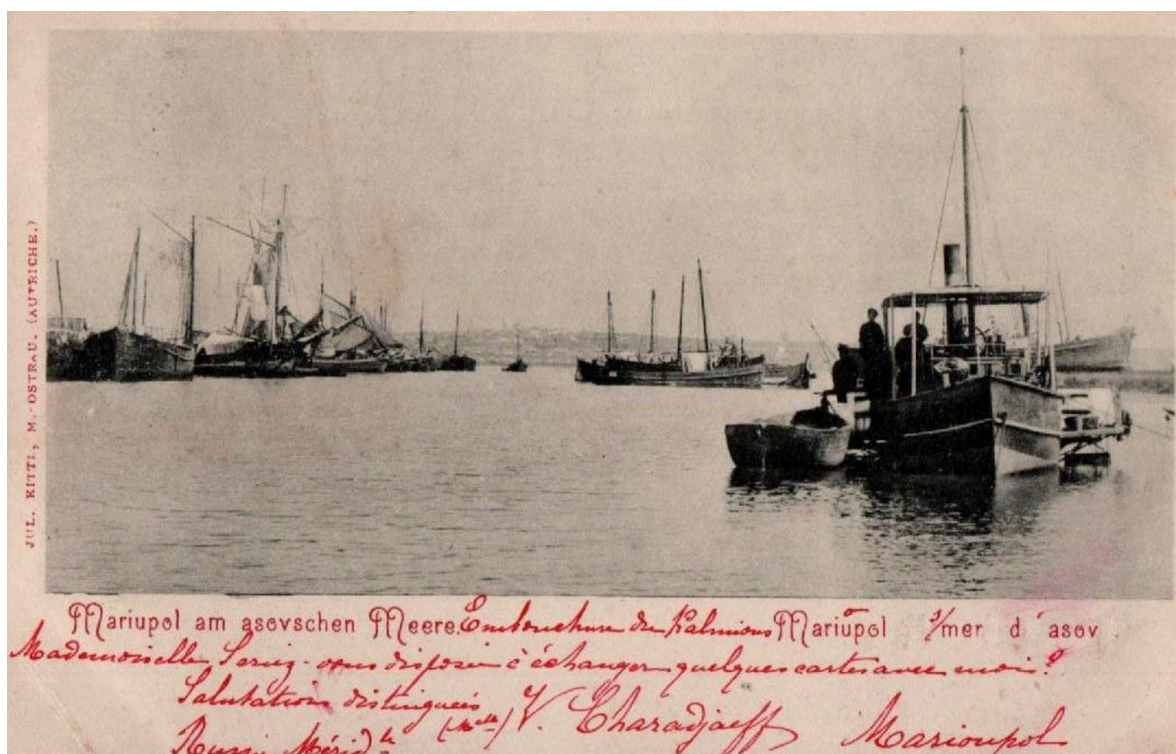 JUL. KITTL, M.-OSTRAU. (AUTRICHE.)
Mariupol am asovschen Meere. Embouchure du Kalmious Mariupol s/mer d'asov.
Mademoiselle, Seriez-vous disposée à échanger quelques cartes avec moi?
Salutations distinguées
(Melle) V. Charadjaeff Marioupol
Russie Mérid.le